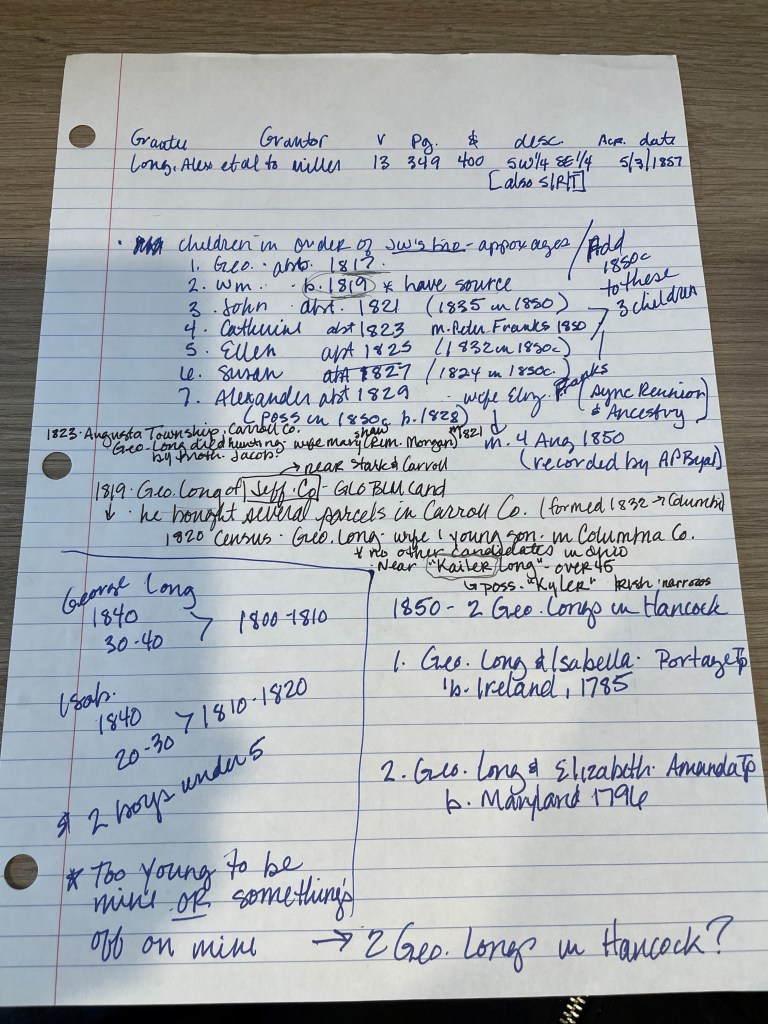 Grantee Grantor V Pg. $ desc. Acr. date
Long, Alex et al to Miller 13 349 400 SW¼ SE¼ 5/3/1857
[also S/R/T]
• children in order of JW's bro - approx ages
1. Geo. abt. 1817.
2. Wm. b. 1819 * have source
3. John abt. 1821 (1835 in 1850)
4. Catherine abt 1823 m. Peter Franks 1850
5. Ellen abt 1825 (1832 in 1850c)
6. Susan abt 1827 (1824 in 1850c.)
7. Alexander abt 1829 - wife Eliz. Franks
(poss in 1850c b. 1828)
Add
1850c
to these
3 children
(Sync Reunion
& Ancestry)
m. 4 Aug 1850
(recorded by AP Byal)
1823 - Augusta Township, Carroll Co.
Geo. Long died hunting - wife Mary Shaw (Rem. Morgan) m 1821
by broth. Jacob
→ near Stark & Carroll
1819 - Geo. Long of Jeff. Co - GLO BLM card
↓ - he bought several parcels in Carroll Co. (formed 1832 → Columbi)
1820 Census - Geo. Long - wife 1 young son - in Columbna Co.
& no other candidates in Ohio
• Near "Kailer Long" - over 45
↳ poss. "Kyler" Irish
George Long
1840
30-40 > 1800-1810
Isab.
1840
20-30 > 1810-1820
2 boys under 5
* Too young to be
mine OR something's
off on mine → 2 Geo. Longs in Hancock?
1850 - 2 Geo. Longs in Hancock
1. Geo. Long & Isabella - Portage Tp
b. Ireland, 1785
2. Geo. Long & Elizabeth - Amanda Tp
b. Maryland 1796